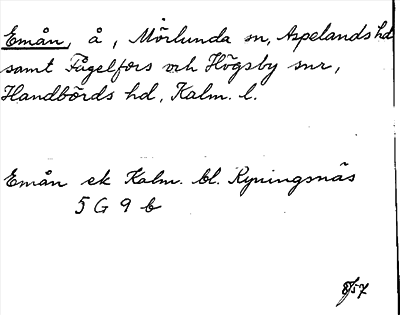 Emån, å, Mörlunda sn, Aspelands hd
samt Fågelfors och Högsby snr,
Handbörds hd, Kalm. l.
Emån ek Kalm. bl. Ryningsnäs
5 G 9 b
8/57